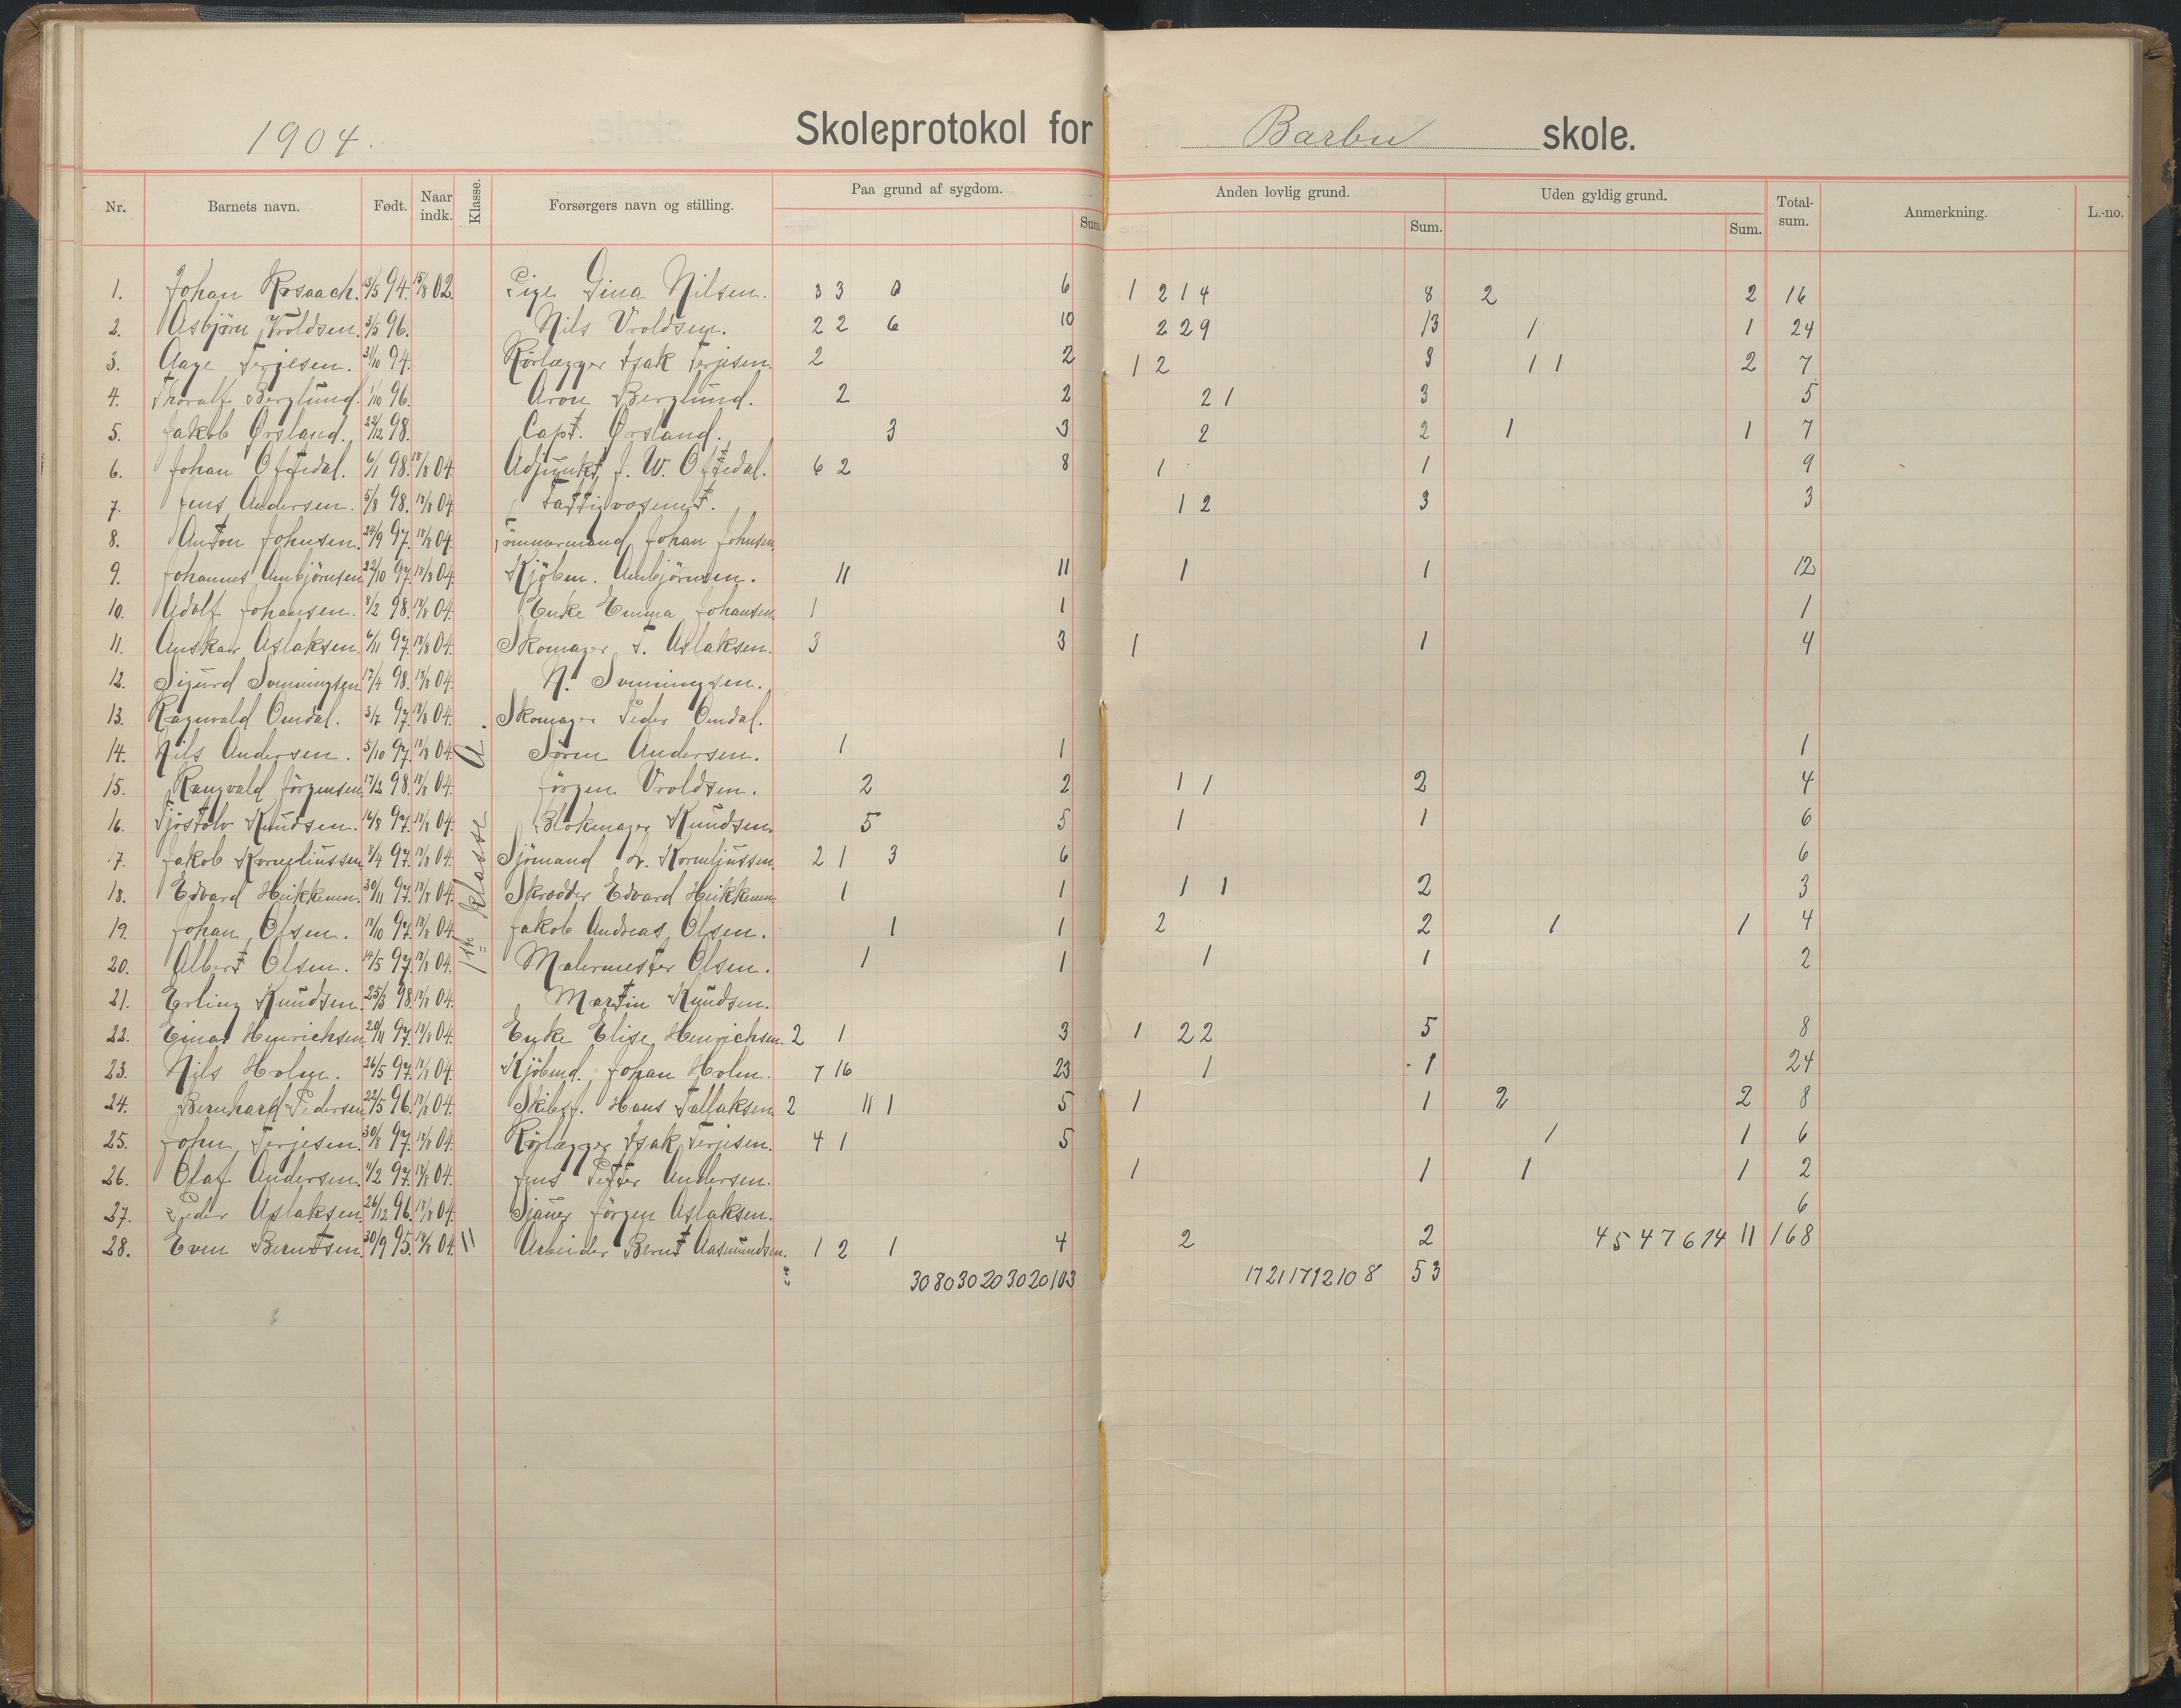 1904.
Skoleprotokol for Barbu skole.
Nr. Barnets navn. Født. Naar indk. Klasse. Forsørgers navn og stilling. Paa grund af sygdom. Sum. Anden lovlig grund. Sum. Uden gyldig grund. Sum. Total-sum. Anmerkning. L.-no.
1ste Klasse A.
1. Johan Rosaach. 13/5 94. 15/8 02. Pige Gina Nilsen. 3 3 0 6 1 2 1 4 8 2 2 16
2. Asbjørn Vroldsen. 3/5 96. Nils Vroldsen. 2 2 6 10 2 2 9 13 1 1 24
3. Aage Terjesen. 31/10 94. Rørlægger Isak Terjesen. 2 2 1 2 3 1 1 2 7
4. Thoralf Berglund. 1/10 96. Aron Berglund. 2 2 2 1 3 5
5. Jakob Ørsland. 22/12 98. Capt. Ørsland. 3 3 2 2 1 1 7
6. Johan Oftedal. 6/1 98. 18/8 04. Adjunkt J. W. Oftedal. 6 2 8 1 1 9
7. Jens Andersen. 5/8 98. 18/8 04. Fattigvæsenet. 1 2 3 3
8. Anton Johnsen. 24/9 97. 18/8 04. Tømmermand Johan Johnsen.
9. Johannes Ambjørnsen 22/10 97. 18/8 04. Kjøbm. Ambjørnsen. 11 11 1 1 12
10. Adolf Johansen. 8/2 98. 18/8 04. Enke Emma Johansen. 1 1 1
11. Anskar Aslaksen. 6/11 97. 18/8 04. Skomager T. Aslaksen. 3 3 1 1 4
12. Sigurd Svenningsen 17/4 98. 18/8 04. N. Svenningsen.
13. Ragnvald Omdal. 3/7 97. 18/8 04. Skomager Peder Omdal.
14. Nils Andersen. 5/10 97. 18/8 04. Søren Andersen. 1 1 1
15. Rangvald Jørgensen 17/2 98. 18/8 04. Jørgen Vroldsen. 2 2 1 1 2 4
16. Tjøstolv Knudsen. 16/8 97. 18/8 04. Blokmager Knudsen. 5 5 1 1 6
17. Jakob Korneliussen 8/4 97. 18/8 04. Sjømand L. Korneliussen. 2 1 3 6 6
18. Edvard Heikkenen. 30/11 97. 18/8 04. Skrædder Edvard Heikkenen. 1 1 1 1 2 3
19. Johan Olsen. 18/10 97. 18/8 04. Jakob Andreas Olsen. 1 1 2 2 1 1 4
20. Albert Olsen. 14/5 97. 18/8 04. Malermester Olsen. 1 1 1 1 2
21. Erling Knudsen. 25/3 98. 18/8 04. Martin Knudsen.
22. Einar Henrichsen. 20/11 97. 18/8 04. Enke Elise Henrichsen. 2 1 3 1 2 2 5 8
23. Nils Holm. 26/5 97. 18/8 04. Kjøbmd. Johan Holm. 7 16 23 1 1 24
24. Bernhard Pedersen 22/5 96. 18/8 04. Skibsf. Hans Tallaksen 2 11 1 5 1 1 2 2 8
25. John Terjesen. 30/8 97. 18/8 04. Rørlægger Isak Terjesen. 4 1 5 1 1 6
26. Olaf Andersen. 11/2 97. 18/8 04. Jens Petter Andersen. 1 1 1 1 2
27. Peder Aslaksen. 26/12 96. 18/8 04. Sjauer Jørgen Aslaksen. 6
28. Even Berntsen. 30/9 95. 18/8 04. 11 Arbeider Bernt Aasmundsen. 1 2 1 4 2 2 4 5 4 7 6 14 11 168
30 80 30 20 30 20 103 17 21 17 12 10 8 53